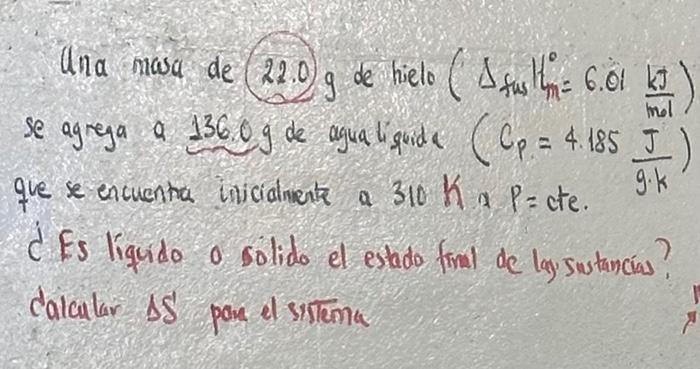 Una masa de 22.0 g de hielo (Δ fus H°m = 6.01 kJ/mol)
se agrega a 136.0 g de agua líquida (Cp = 4.185 J/g·k)
que se encuentra inicialmente a 310 K a P = cte.
¿Es líquido o sólido el estado final de las sustancias?
Calcular ΔS para el sistema